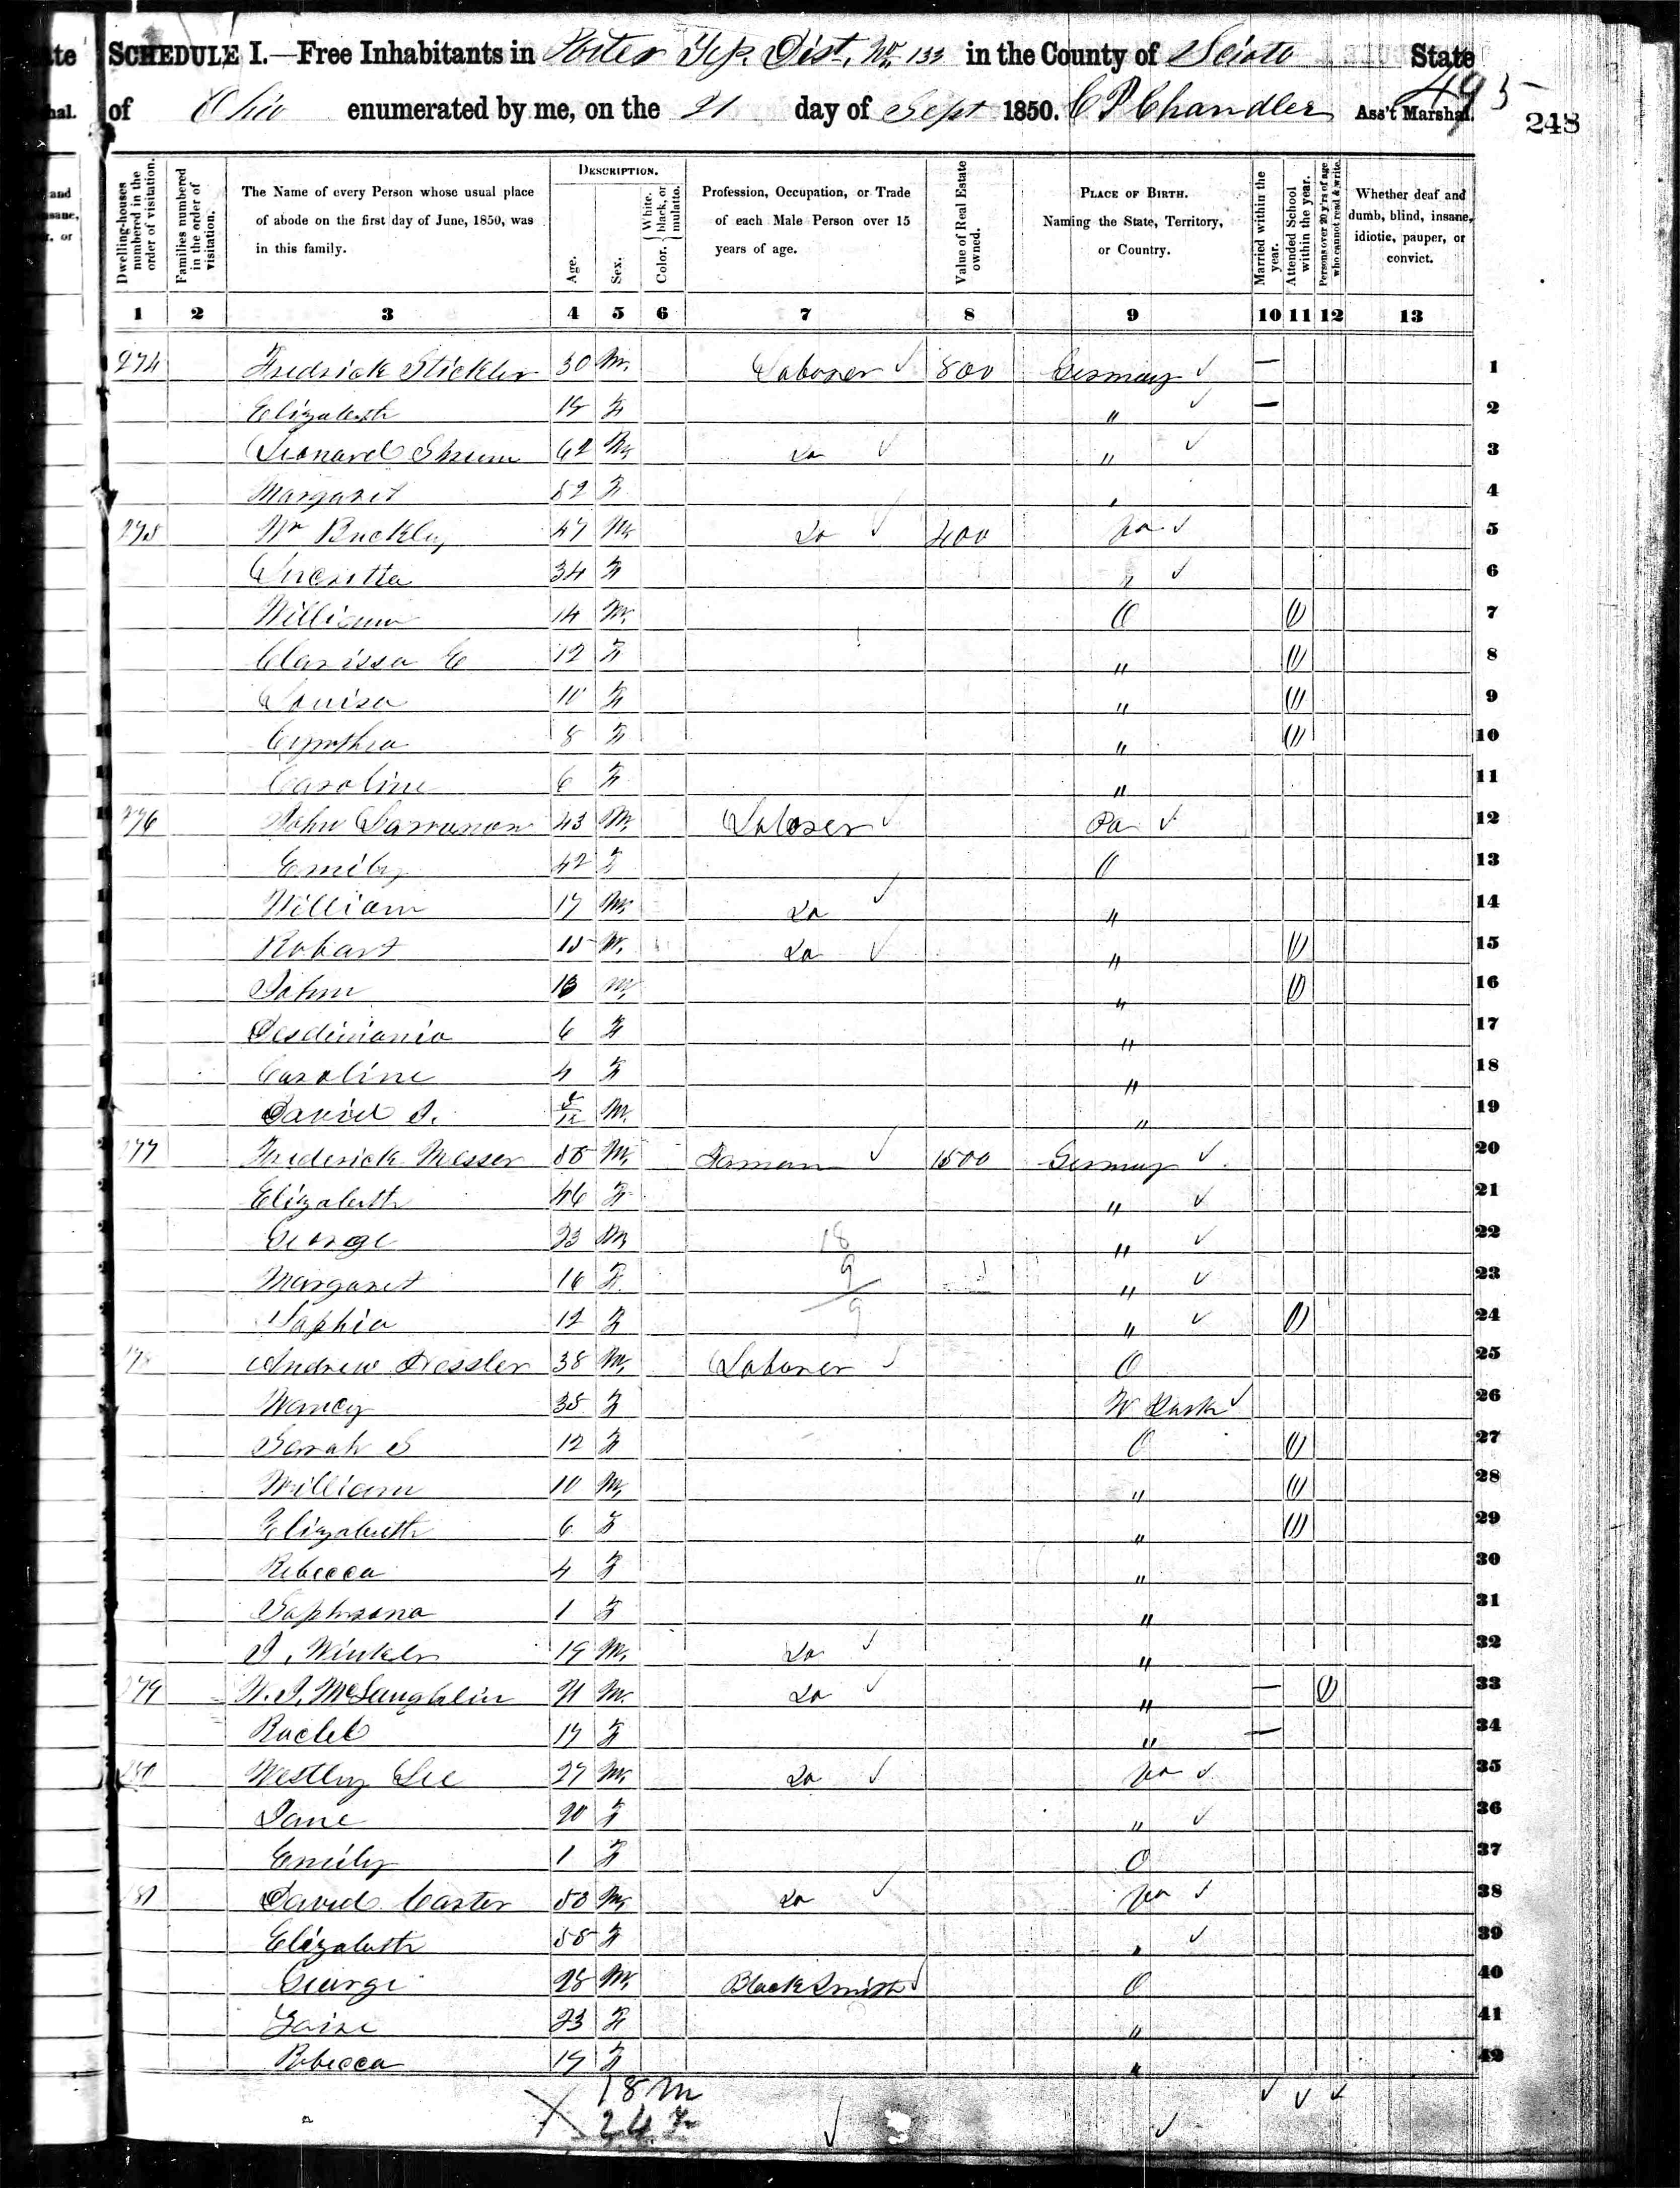 SCHEDULE I.—Free Inhabitants in Porter Tsp. Dist. No 133 in the County of Scioto State
of Ohio enumerated by me, on the 21 day of Sept 1850. C P Chandler Ass't Marshal.
495
248
Dwelling-houses numbered in the order of visitation.
Families numbered in the order of visitation.
The Name of every Person whose usual place of abode on the first day of June, 1850, was in this family.
DESCRIPTION.
Age.
Sex.
Color. { White, black, or mulatto.
Profession, Occupation, or Trade of each Male Person over 15 years of age.
Value of Real Estate owned.
PLACE OF BIRTH.
Naming the State, Territory, or Country.
Married within the year.
Attended School within the year.
Persons over 20 y'rs of age who cannot read & write.
Whether deaf and dumb, blind, insane, idiotic, pauper, or convict.
1 2 3 4 5 6 7 8 9 10 11 12 13
274 Fredrick Stickler 30 M Laborer 800 Germany — 1
Elizabeth F " — 2
Leonard 62 M Do " 3
Margaret 52 F " 4
275 Wm Buckley 47 M Do 400 5
34 F " 6
William 14 M O 7
Clarissa E 12 F " 8
Louisa 10 F " 9
Cynthia 8 F " 10
Caroline 6 F " 11
276 John 43 M Laborer Pa 12
Emily 42 F O 13
William 17 M Do " 14
Robart 15 M Do " 15
John 13 M " 16
6 F " 17
Caroline 4 F " 18
David J. M " 19
277 Frederick Messer 55 M Farman 1500 Germany 20
Elizabeth 46 F " 21
George 23 M " 22
Margaret 16 F " 23
Sophia 12 F " 24
18
9
9
Andrew Dressler 38 M Laborer O 25
Nancy 35 F 26
Sarah S 12 F O 27
William 10 M " 28
Elizabeth 6 F " 29
Rebecca 4 F " 30
Sophrona 1 F " 31
J. Winkler 19 M Do " 32
279 W. J. McLaughlin 21 M Do " — 33
Rachel 17 F " — 34
280 Westley Lee 27 M Do 35
Jane 20 F " 36
Emily 1 F O 37
281 David Carter 53 M Do 38
Elizabeth 55 F " 39
George 28 M BlackSmith O 40
23 F " 41
Rebecca 17 F " 42
18 M
24 F